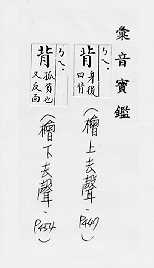 彙音寶鑑
ㄅㄟ˪
背 身後曰背
(檜上去聲·P447)
ㄅㄟ˫
背 孤負也又反面
(檜下去聲·P454)